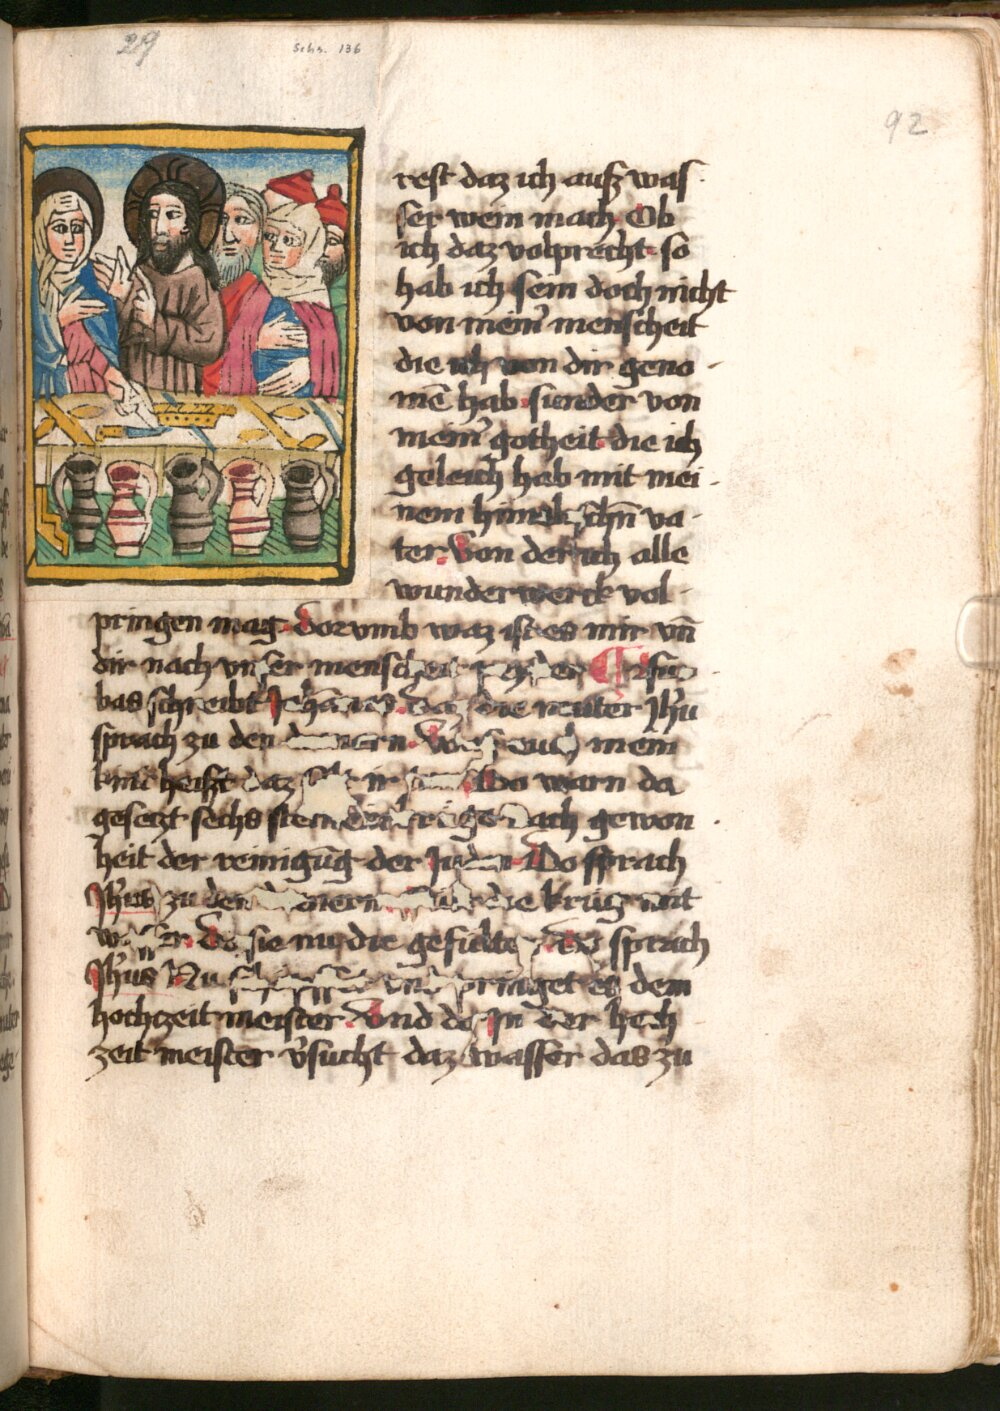 29
Schr. 136
92
rest daz ich auß was
ser wein mach. Ob
ich daz volprecht. so
hab ich sein doch nicht
von meim̄ menscheit
die ich von dir geno
mē hab. sunder von
meiner gotheit. die ich
geleich hab mit mei
nem himelischn̄ va
ter. Von der ich alle
wunderwerck vol
pringen mag. Dorvmb waz ist es mir vn̄
dir nach vnser menscheit
bas schreibt Johānes. daz die muter Jhū
sprach zu den dienern. Was euch mein
kint heißt daz ir Do warn da
gesetzt sechs steinein krüge nach gewon
heit der reinigūg der Juden. Do sprach
Jhūs zu den dienern die krüg mit
wasser. do sie nu die gefulten do sprach
Jhūs Nu vnd pringet es dem
hochzeit meister. Vnd do Jn der hoch
zeit meister v̄sucht daz wasser das zu